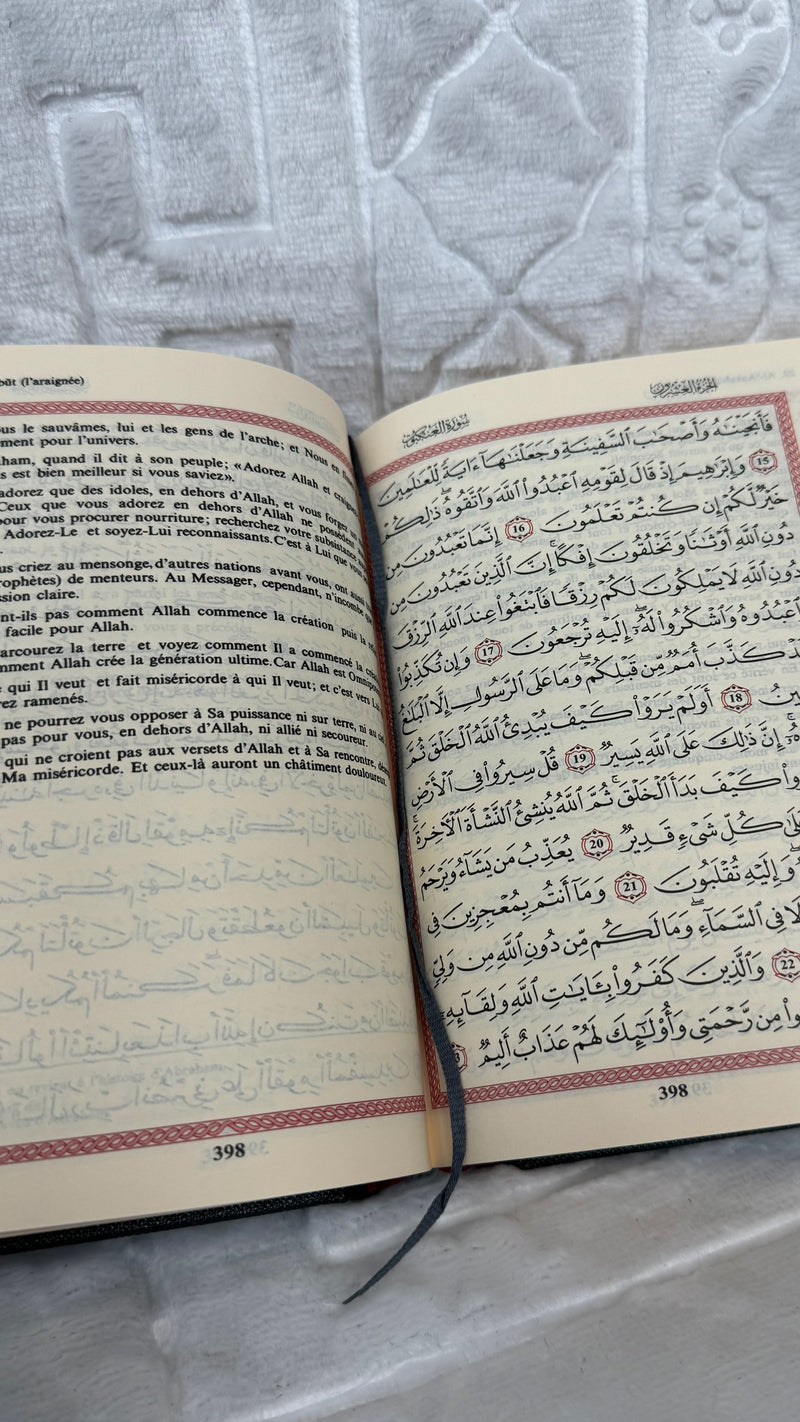 būt (l'araignée)
us le sauvâmes, lui et les gens de l'arche; et Nous en
ment pour l'univers.
ham, quand il dit à son peuple; «Adorez Allah et craignez
s est bien meilleur si vous saviez».
adorez que des idoles, en dehors d'Allah, et vous forgez un
Ceux que vous adorez en dehors d'Allah ne possèdent
pour vous procurer nourriture; recherchez votre subsistance
Adorez-Le et soyez-Lui reconnaissants. C'est à Lui que vous
us criez au mensonge, d'autres nations avant vous, ont aussi
rophètes) de menteurs. Au Messager, cependant, n'incombe que
ssion claire.
nt-ils pas comment Allah commence la création puis la
facile pour Allah.
arcourez la terre et voyez comment Il a commencé la
mment Allah crée la génération ultime. Car Allah est Omnipotent
qui Il veut et fait miséricorde à qui Il veut; et c'est vers Lui
ez ramenés.
ne pourrez vous opposer à Sa puissance ni sur terre, ni au ciel
pas pour vous, en dehors d'Allah, ni allié ni secoureur.
qui ne croient pas aux versets d'Allah et à Sa rencontre,
Ma miséricorde. Et ceux-là auront un châtiment douloureux.
398
الجزء العشرون
سورة العنكبوت
فَأَنجَيْنَٰهُ وَأَصْحَٰبَ ٱلسَّفِينَةِ وَجَعَلْنَٰهَآ ءَايَةً لِّلْعَٰلَمِينَ
15 وَإِبْرَٰهِيمَ إِذْ قَالَ لِقَوْمِهِ ٱعْبُدُوا۟ ٱللَّهَ وَٱتَّقُوهُ ۖ ذَٰلِكُمْ
خَيْرٌ لَّكُمْ إِن كُنتُمْ تَعْلَمُونَ 16 إِنَّمَا تَعْبُدُونَ مِن
دُونِ ٱللَّهِ أَوْثَٰنًا وَتَخْلُقُونَ إِفْكًا ۚ إِنَّ ٱلَّذِينَ تَعْبُدُونَ مِن
دُونِ ٱللَّهِ لَا يَمْلِكُونَ لَكُمْ رِزْقًا فَٱبْتَغُوا۟ عِندَ ٱللَّهِ ٱلرِّزْقَ
ٱعْبُدُوهُ وَٱشْكُرُوا۟ لَهُۥٓ ۖ إِلَيْهِ تُرْجَعُونَ 17 وَإِن تُكَذِّبُوا۟
كَذَّبَ أُمَمٌ مِّن قَبْلِكُمْ ۖ وَمَا عَلَى ٱلرَّسُولِ إِلَّا ٱلْبَلَٰغُ
ينُ 18 أَوَلَمْ يَرَوْا۟ كَيْفَ يُبْدِئُ ٱللَّهُ ٱلْخَلْقَ ثُمَّ
إِنَّ ذَٰلِكَ عَلَى ٱللَّهِ يَسِيرٌ 19 قُلْ سِيرُوا۟ فِى ٱلْأَرْضِ
وا۟ كَيْفَ بَدَأَ ٱلْخَلْقَ ۚ ثُمَّ ٱللَّهُ يُنشِئُ ٱلنَّشْأَةَ ٱلْءَاخِرَةَ ۚ
كُلِّ شَىْءٍ قَدِيرٌ 20 يُعَذِّبُ مَن يَشَآءُ وَيَرْحَمُ
وَإِلَيْهِ تُقْلَبُونَ 21 وَمَآ أَنتُم بِمُعْجِزِينَ فِى
لَا فِى ٱلسَّمَآءِ ۖ وَمَا لَكُم مِّن دُونِ ٱللَّهِ مِن وَلِىٍّ
22 وَٱلَّذِينَ كَفَرُوا۟ بِـَٔايَٰتِ ٱللَّهِ وَلِقَآئِهِۦٓ
وا۟ مِن رَّحْمَتِى وَأُو۟لَٰٓئِكَ لَهُمْ عَذَابٌ أَلِيمٌ
398